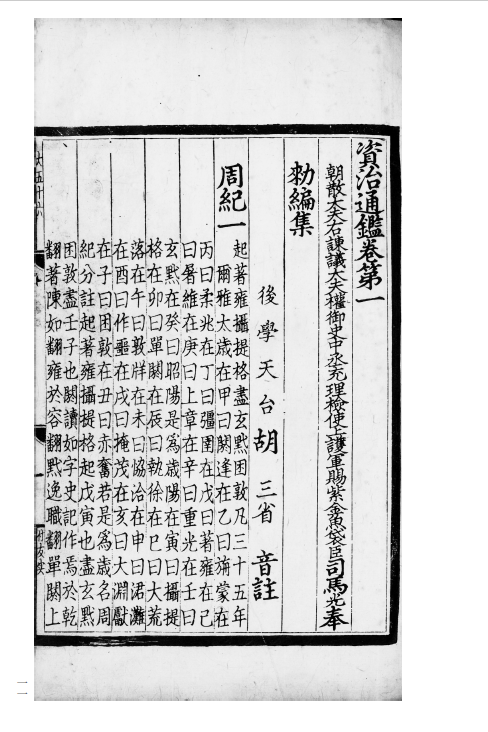 資治通鑑卷第一
朝散大夫右諫議大夫權御史中丞充理檢使上護軍賜紫金魚袋臣司馬光奉
勑編集
後學天台胡三省音註
周紀一
起著雍攝提格盡玄黓困敦凡三十五年
爾雅太歲在甲曰閼逢在乙曰旃蒙在
丙曰柔兆在丁曰彊圉在戊曰著雍在己
曰屠維在庚曰上章在辛曰重光在壬曰
玄黓在癸曰昭陽是為歲陽在寅曰攝提
格在卯曰單閼在辰曰執徐在巳曰大荒
落在午曰敦牂在未曰協洽在申曰涒灘
在酉曰作噩在戌曰掩茂在亥曰大淵獻
在子曰困敦在丑曰赤奮若是為歲名周
紀分註起著雍攝提格起戊寅也盡玄黓
困敦盡壬子也閼讀如字史記作焉於乾
翻著陳如翻雍於容翻黓逸職翻單閼上
大五十六